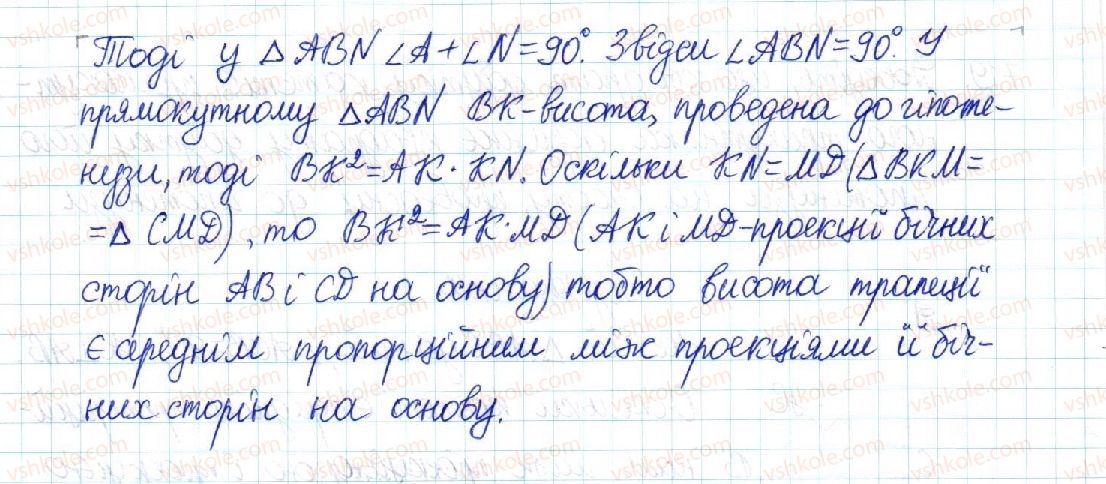 Тоді у △ABN ∠A+∠N=90°. Звідси ∠ABN=90°. У
прямокутному △ABN BK-висота, проведена до гіпоте-
нузи, тоді BK²=AK·KN. Оскільки KN=MD(△BKM=
=△CMD), то BK²=AK·MD (AK і MD-проекції бічних
сторін AB і CD на основу) тобто висота трапеції
є середнім пропорційним між проекціями її біч-
них сторін на основу.